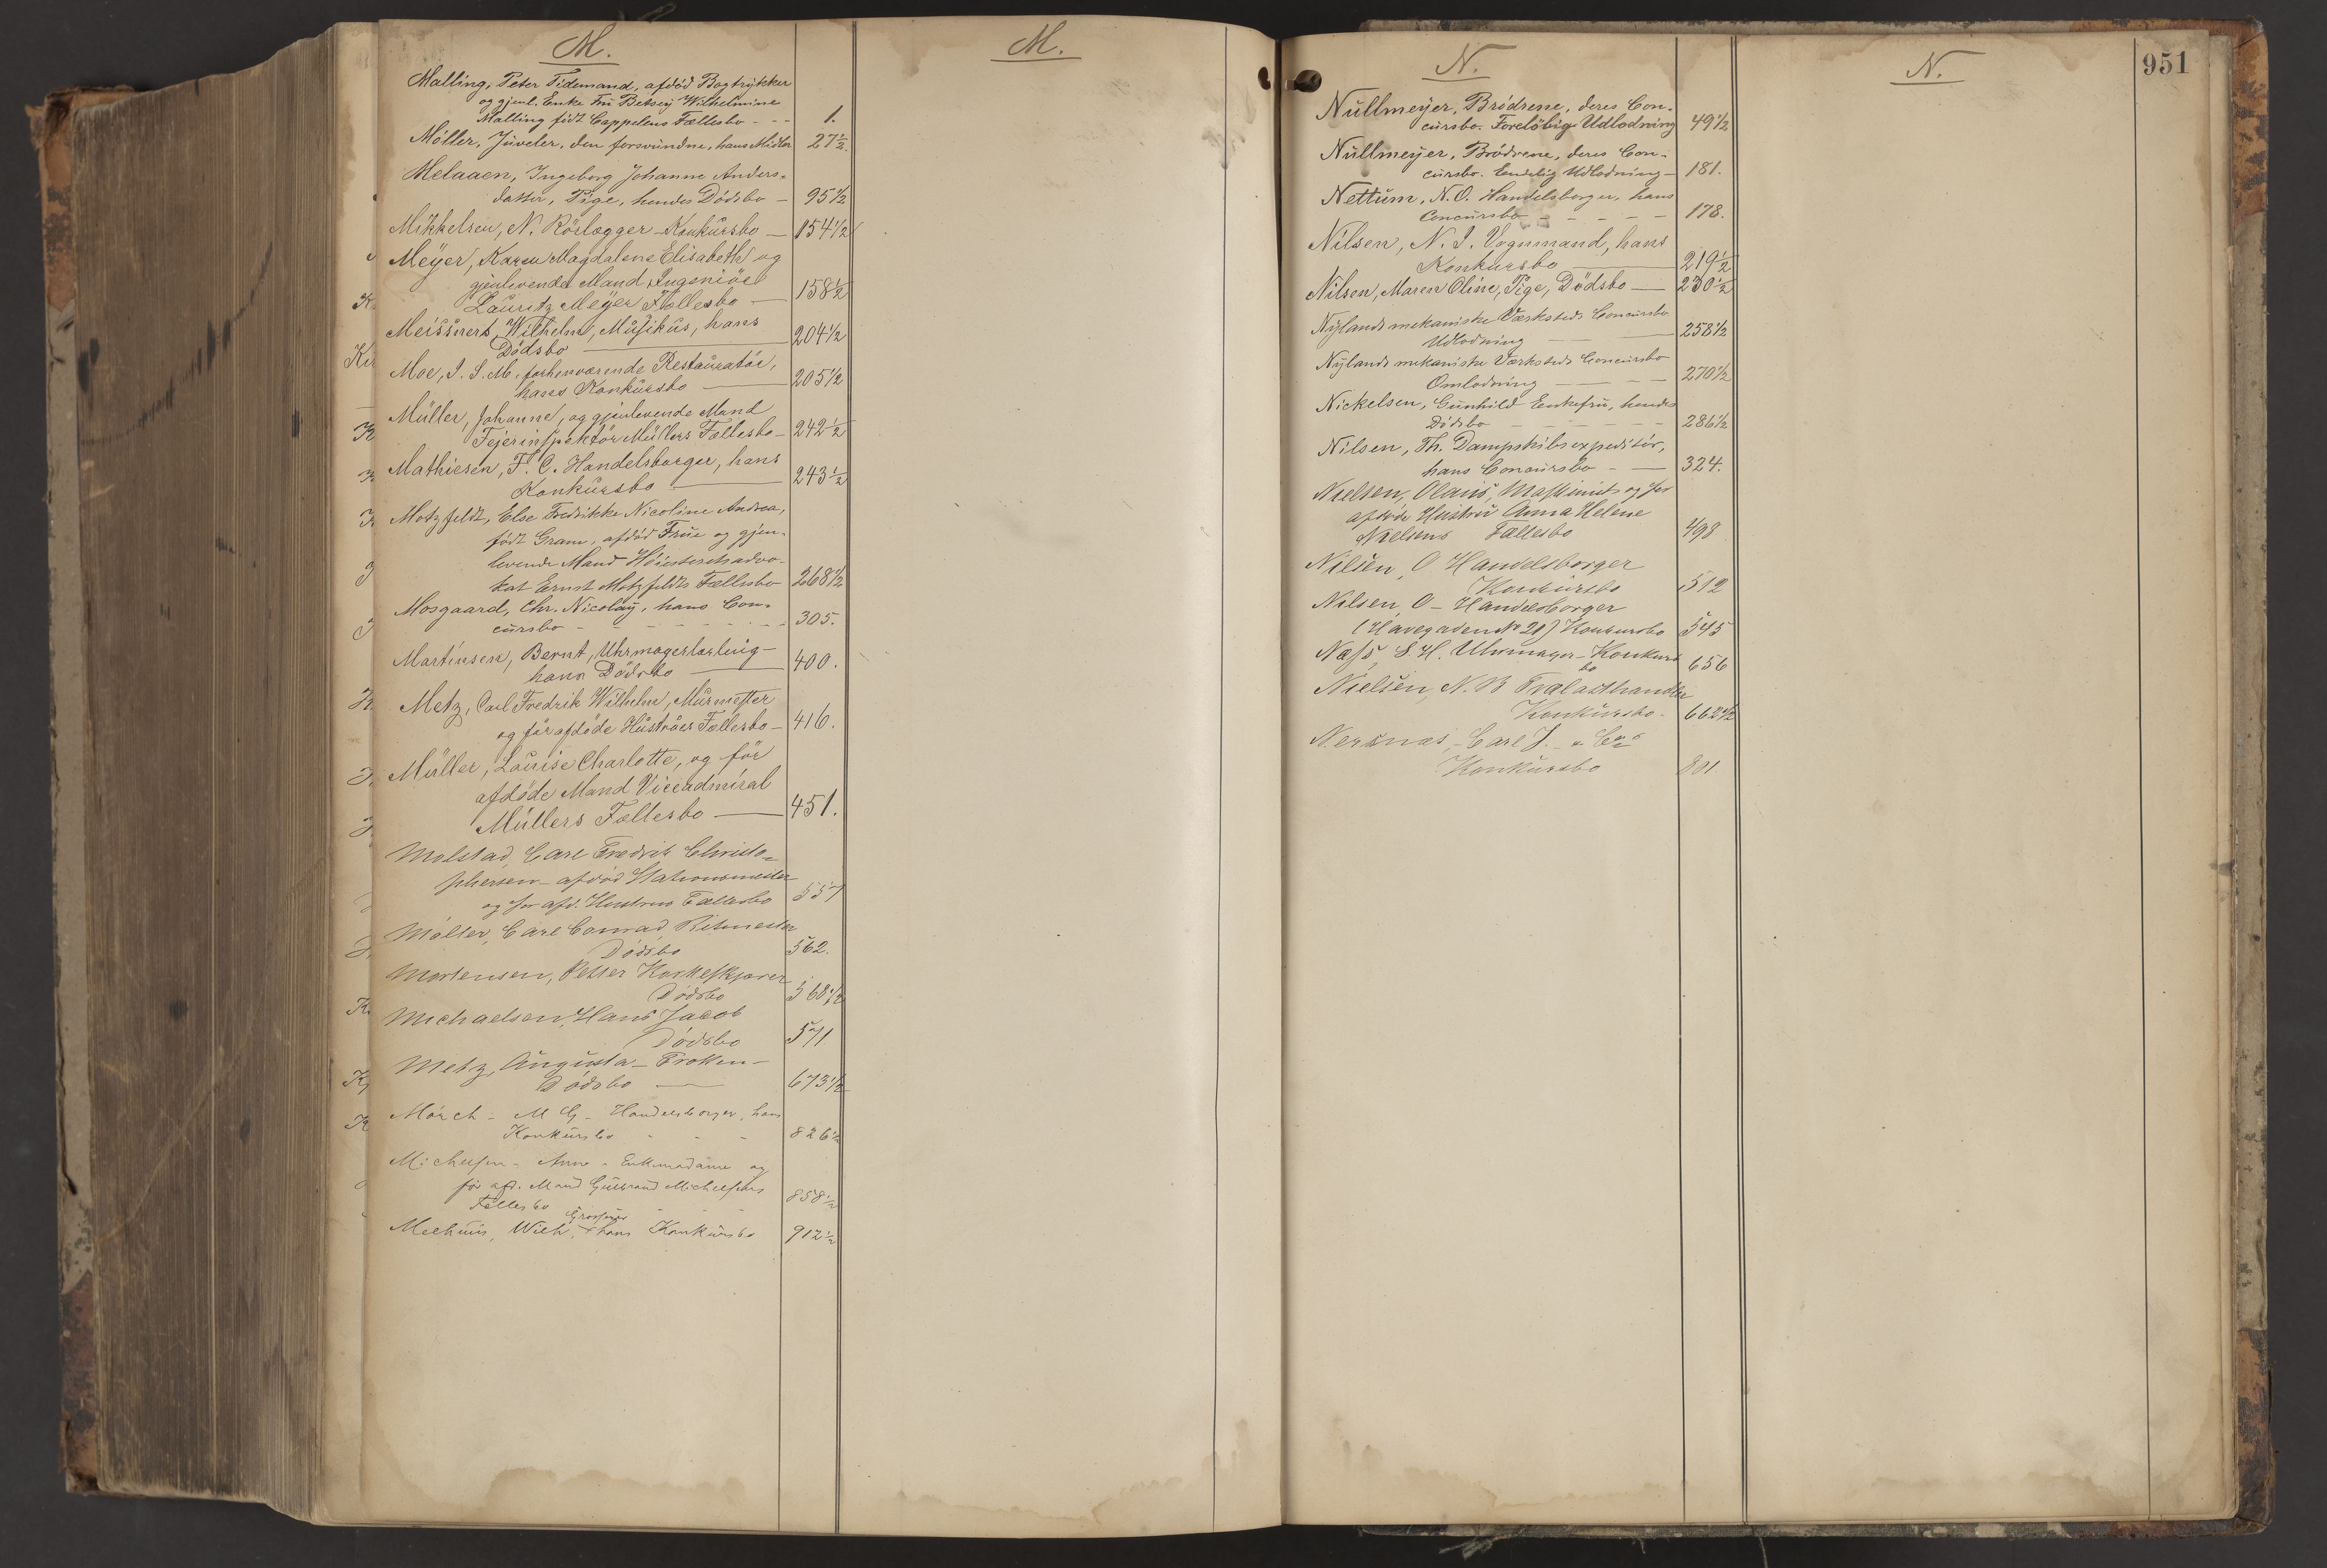 M.
Malling, Peter Tidemand, afdöd Bogtrykker
og gjenl. Enke Fru Betsey Wilhelmine
Malling födt Cappelens Fællesbo - - - 1.
Möller, Juveler, den forsvundne, hans Midler 27 1/2.
Melaaen, Ingeborg Johanne Anders-
datter, Pige, hendes Dödsbo - 95 1/2
Mikkelsen, N. Rörlægger - Konkursbo - 154 1/2
Meyer, Karen Magdalene Elisabeth og
gjenlevende Mand Ingeniör
Lauritz Meyer Fællesbo - 158 1/2
Meissnert, Wilhelm, Musikus, hans
Dödsbo - 204 1/2
Moe, I. S. M. forhenværende Restauratör,
hans Konkursbo - 205 1/2
Müller, Johanne, og gjenlevende Mand
Fejerinspektör Müllers Fællesbo - 242 1/2
Mathiesen, F. C. Handelsborger, hans
Konkursbo - 243 1/2
Motzfeldt, Else Fredrikke Nicoline Andrea,
födt Gram, afdöd Frue og gjen-
levende Mand Höiesteretsadvo-
kat Ernst Motzfeldts Fællesbo 268 1/2
Mosgaard, Chr. Nicolay, hans Con-
cursbo - - - - - 305.
Martinsen, Bernt, Uhrmagerlærling -
hans Dödsbo - 400.
Metz, Carl Fredrik Wilhelm, Murmester
og för afdöde Hustrues Fællesbo - 416.
Müller, Louise Charlotte, og för
afdöde Mand Viceadmiral
Müllers Fællesbo - 451.
Molstad, Carl Fredrik Christo-
phersen - afdöd Stationsmester
og för afd. Hustrus Fællesbo 557
Möller, Carl Conrad Ritmester
Dödsbo 562.
Mortensen, Petter
Dödsbo 568 1/2
Michaelsen, Hans Jacob
Dödsbo 571
Metz, Augusta - Fröken -
Dödsbo - 673 1/2
Mörch - M G - Handelsborger, hans
Konkursbo - - - 826 1/2
Michelsen - Anne - Enkemadame og
för afd. Mand Gulbrand Michelsens
Fællesbo - - 858 1/2
Grosserer
Melhuus, Wilh, + hans Konkursbo 912 1/2
M.
N.
Nullmeyer, Brödrene, deres Con-
cursbo. Forelöbig Udlodning 49 1/2
Nullmeyer, Brödrene, deres Con-
cursbo. Endelig Udlodning - 181.
Nettum, N. O. Handelsborger, hans
Concursbo - - - - - 178.
Nilsen, N. I. Vognmand, hans
Konkursbo - 219 1/2
Nilsen, Maren Oline, Pige, Dödsbo - 230 1/2
Nylands mekaniske Værksteds Concursbo
Udlodning - - - 258 1/2
Nylands mekaniske Værksteds Concursbo
Omlodning - - - - 270 1/2
Nickelsen, Gunhild Enkefru, hendes
Dödsbo - - - - - 286 1/2
Nilsen, Th. Dampskibsexpeditör,
hans Concursbo - - 324.
Nielsen, Olaus, Maskinist og för
afdöde Hustru Anna Helene
Nielsens Fællesbo 498
Nilsen, O Handelsborger
Konkursbo 512
Nilsen, O - Handelsborger
(Havegaden No 21) Konkursbo 545
Næss, S. H. Uhrmager - Konkurs
bo 656
Nielsen, N. B Trælasthandler
Konkursbo - 662 1/2
Nersnæs, Carl J. - & Co
Konkursbo 801
N.
951